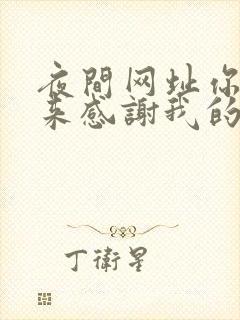 夜間网址你
来感謝我的
丁衛星